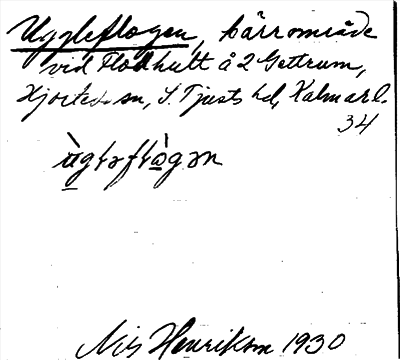 Uggleflogen, kärrområde
vid Flodhult å 2 Gettrum,
Hjorteds sn, S. Tjusts hd, Kalmar l.
34
ùgləflògən
Nils Henrikson 1930